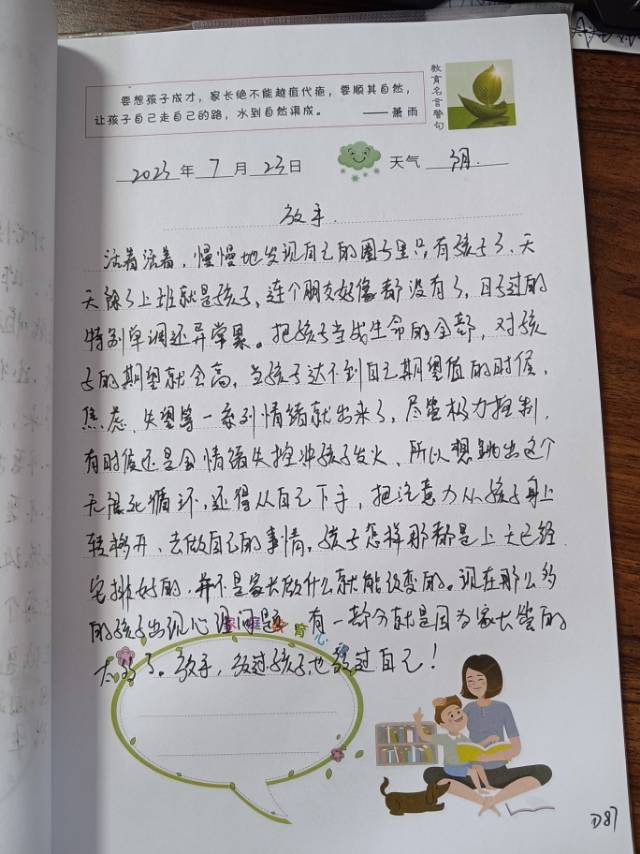 要想孩子成才，家长绝不能越疽代疱，要顺其自然，
让孩子自己走自己的路，水到自然渠成。 ——萧雨
教育名言警句
2023年7月23日 天气 阴.
放手.
活着活着，慢慢地发现自己的圈子里只有孩子了、天
天除了上班就是孩子，连个朋友好像都没有了，日子过的
特别单调还异常累。把孩子当成生命的全部，对孩
子的期望就会高，当孩子达不到自己期望值的时候，
焦虑、失望等一系列情绪就出来了，尽管极力控制，
有时候还是会情绪失控冲孩子发火、所以想跳出这个
无限死循环，还得从自己下手，把注意力从孩子身上
转移开、去做自己的事情，孩子怎样那都是上天已经
安排好的，并不是家长做什么就能改变的。现在那么多
的孩子出现心理问题，有一部分就是因为家长管的
太多了。放手，放过孩子也放过自己！
D87